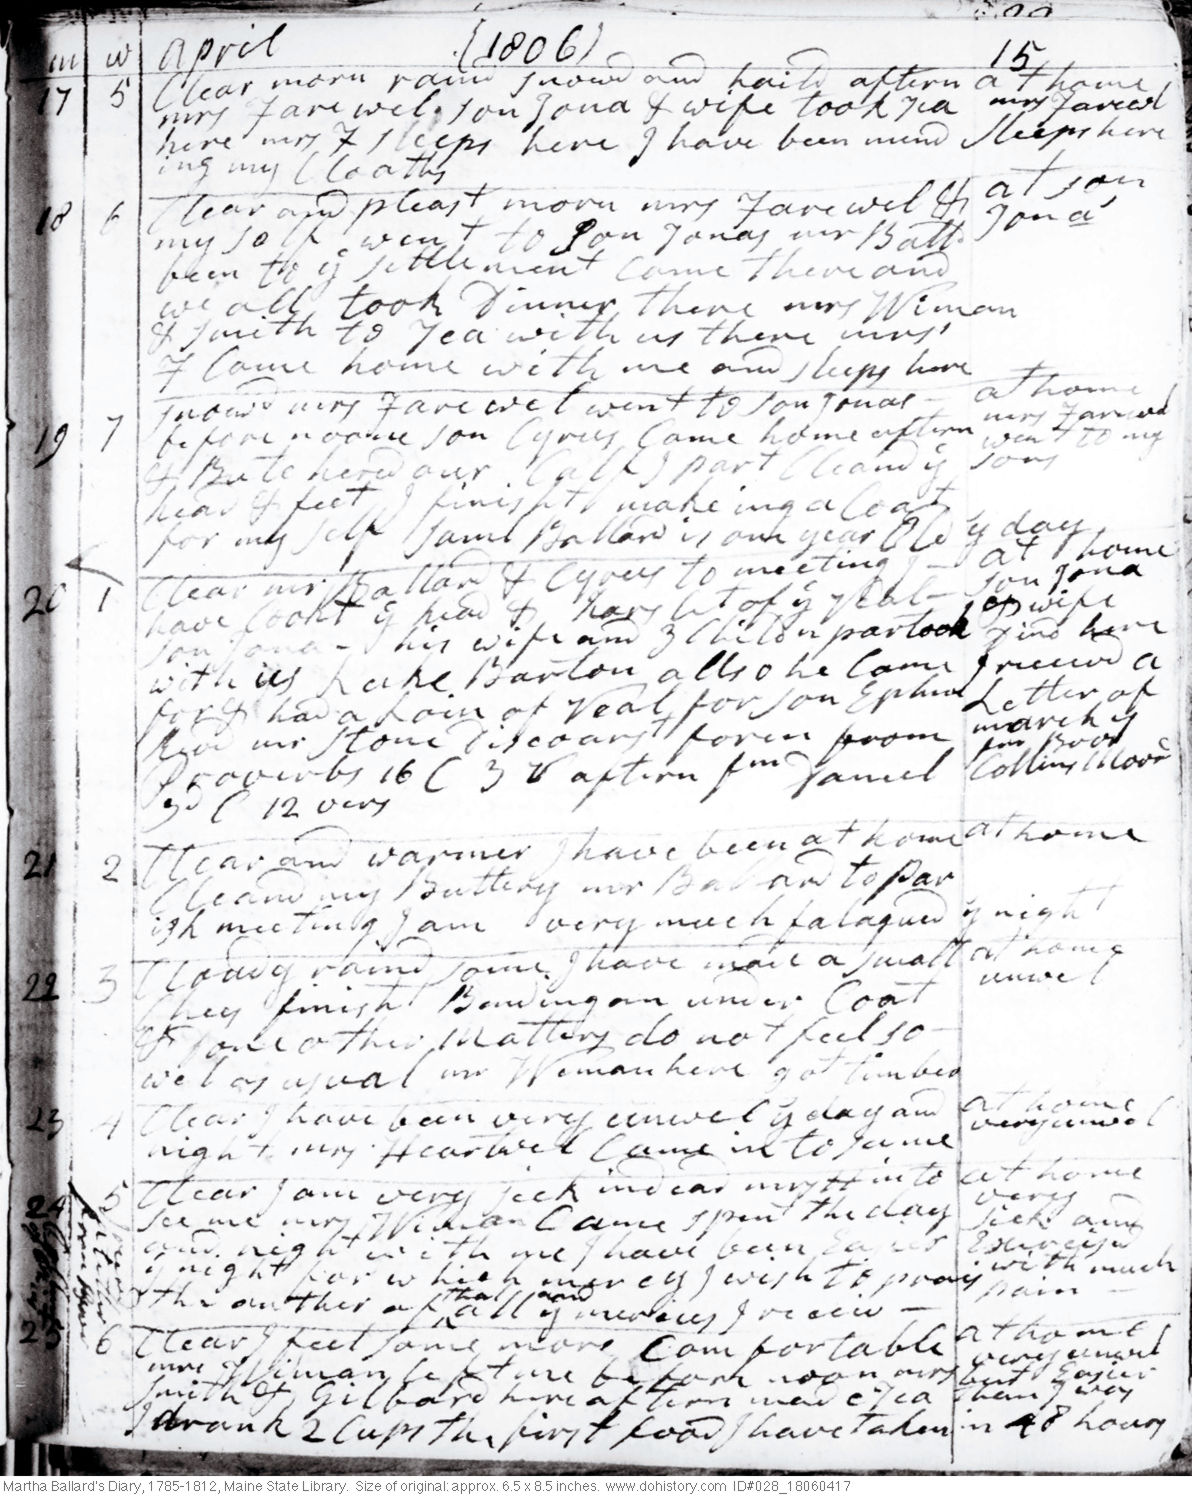 m w April (1806) 15
17 5 Clear morn raind snowd and haild aftern at home
mrs Farewel, son Jona & wife took Tea mrs Farewel
here mrs F sleeps here I have been mend sleeps here
ing my Cloaths
18 6 Clear and pleast morn mrs Farewel & at son
my self went to Son Jonas mr Ball Jonaˢ
been to ÿ settlement Came there and
we all took Dinner there mrs Wiman
& Smith to Tea with us there mrs
F Came home with me and sleeps here
19 7 snowd mrs Farewel went to son Jonas – at home
before noone son Cyrus Came home aftern mrs Farewel went to my
& Butcherd our Calf I part Cleand ÿ sons
head & feet I finisht makeing a Coat
for my self Saml Ballard is one year Old ÿ day
20 1 Clear mr Ballard & Cyrus to meeting I – at home
have Cookt ÿ head & harslet of ÿ Veal – son Jona
son Jona – his wife and 3 Childn partook & wife dind here
with us Luke Barton allso he Came I receivd a
for & had a Loin of Veal for son Ephm Letter of
Read mr Stone Discoarst foren from march ÿ
Proverbs 16 C 3 V aftern fm Daniel fm Bror Collins Moor
3d C 12 vers
21 2 Clear and warmer I have been at home at home
Cleand my Buttery mr Ballard to Par
ish meeting I am very much fatagued ÿ night
22 3 Cloudy raind some. I have made a small at home
Chees finisht Bandingon under Coat unwel
& some other Matters do not feel so –
wel as usual mr Wiman here got timber
23 4 Clear I have been very unwel ÿ day and at home
night mrs Heartwel Came in to see me very unwel
24 5 Clear I am very sick indead mrs H in to at home
see me mrs Wiman Came spent the day very sick and
and night with me I have been Easier Exercisd
ÿ night for which mercy I wish to prais with much
the auther of that all and ÿ mercies I receiv – pain –
25 6 Clear I feel some more Comfortable at home
mrs Wiman left me before noon mrs very unwel
Smith & Gilbard here aftern made Tea but Easier than I was
I drank 2 Cups the first food I have taken in 48 hours
Martha Ballard's Diary, 1785-1812, Maine State Library. Size of original: approx. 6.5 x 8.5 inches. www.dohistory.com ID#028_18060417